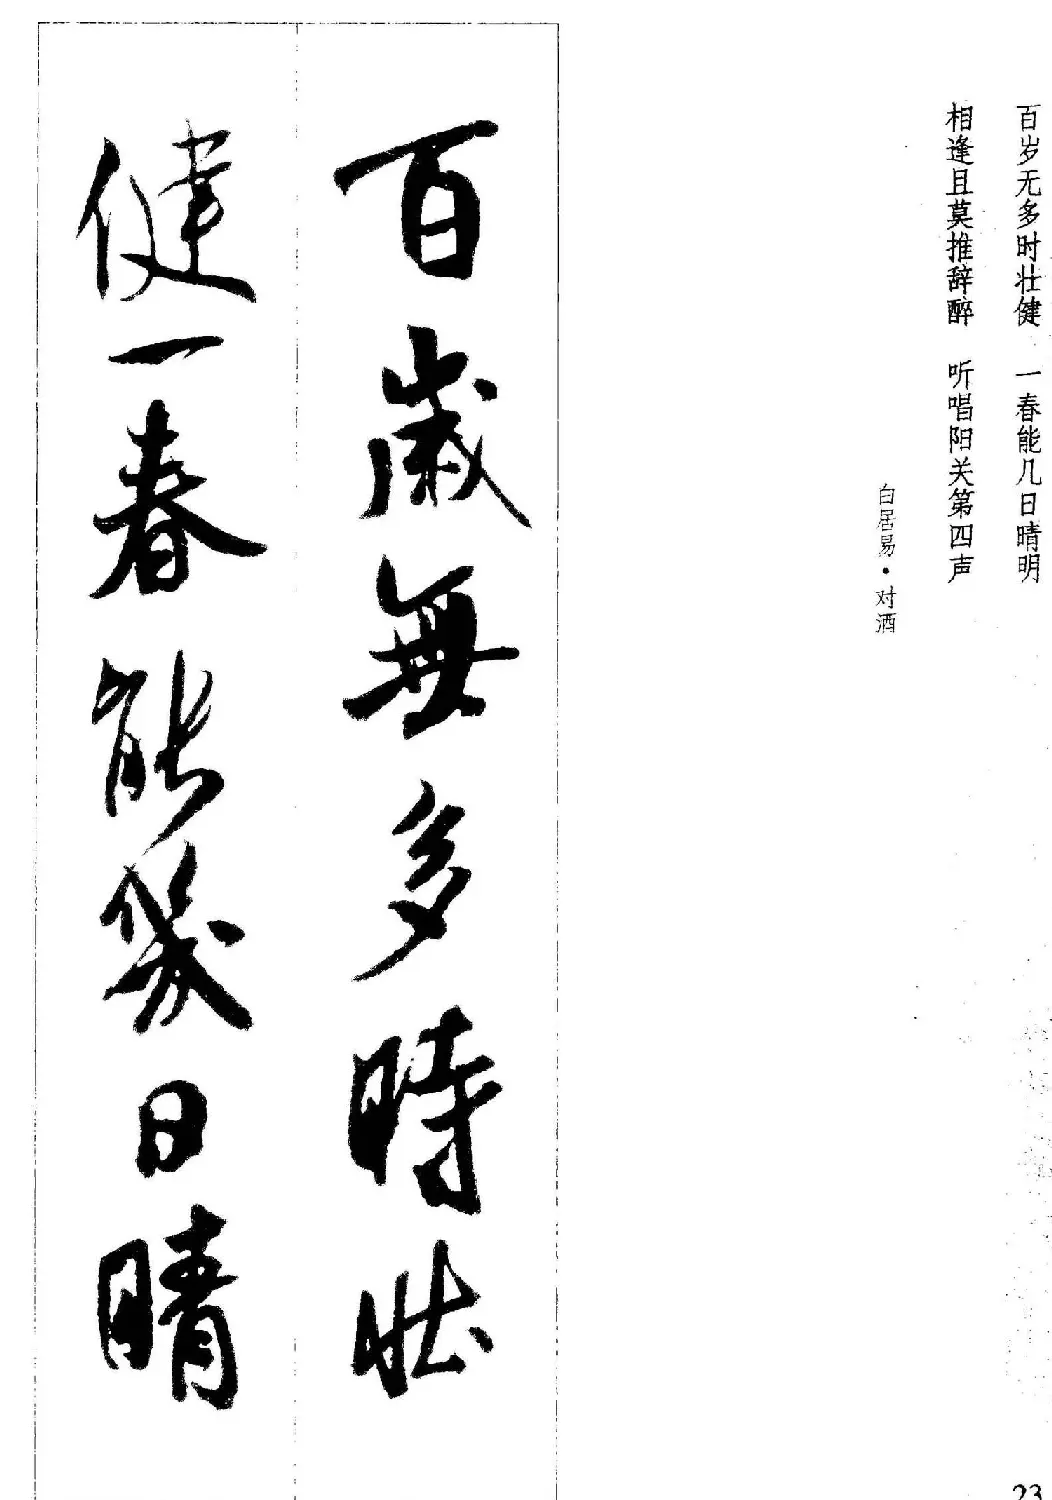 百岁无多时壮健 一春能几日晴明
相逢且莫推辞醉 听唱阳关第四声
白居易·对酒
百歲無多時壯
健一春能幾日晴
23